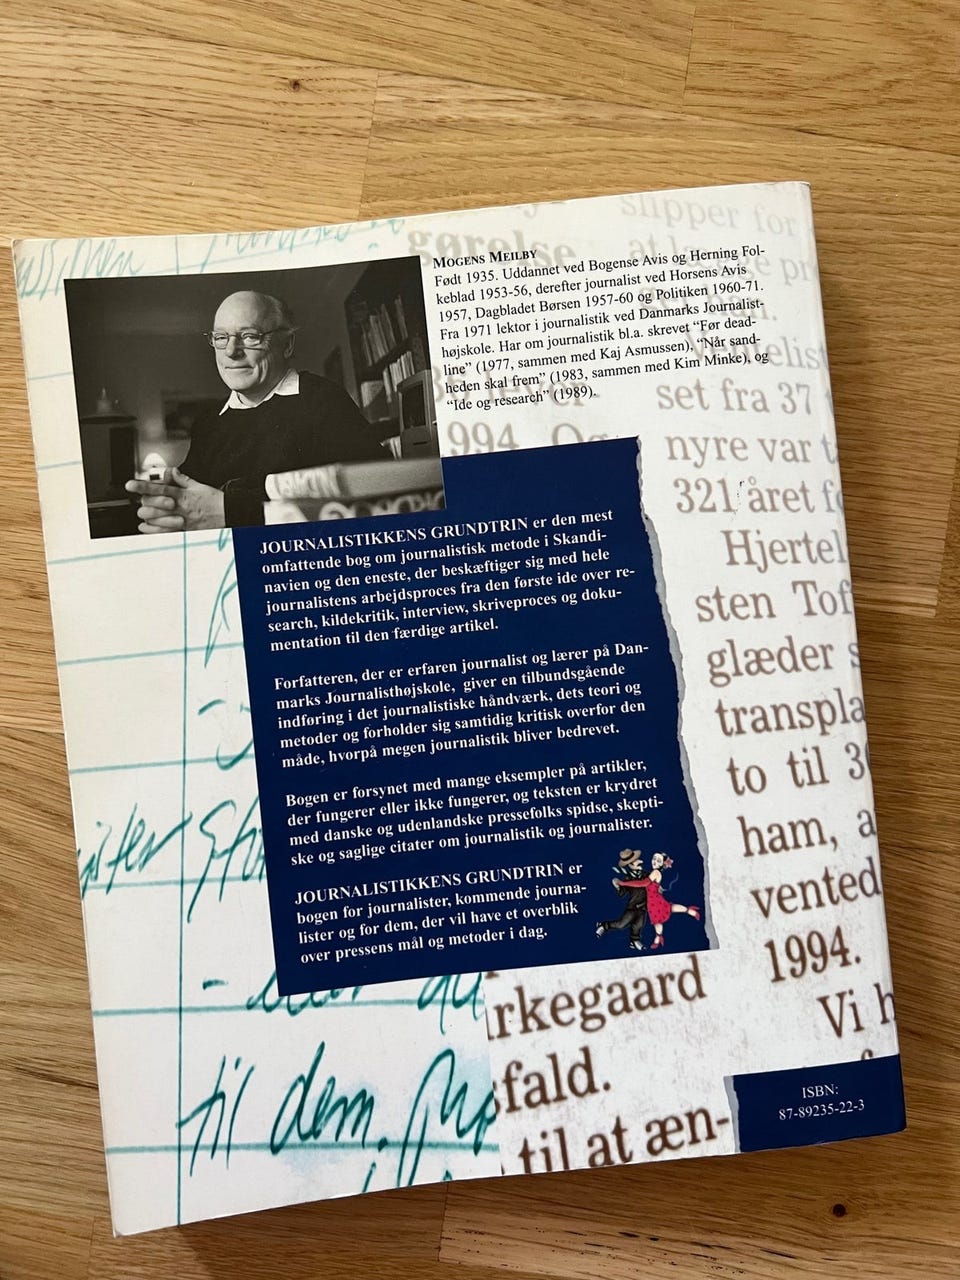 MOGENS MEILBY
Født 1935. Uddannet ved Bogense Avis og Herning Fol-
keblad 1953-56, derefter journalist ved Horsens Avis
1957, Dagbladet Børsen 1957-60 og Politiken 1960-71.
Fra 1971 lektor i journalistik ved Danmarks Journalist-
højskole. Har om journalistik bl.a. skrevet “Før dead-
line” (1977, sammen med Kaj Asmussen), “Når sand-
heden skal frem” (1983, sammen med Kim Minke), og
“Ide og research” (1989).
JOURNALISTIKKENS GRUNDTRIN er den mest
omfattende bog om journalistisk metode i Skandi-
navien og den eneste, der beskæftiger sig med hele
journalistens arbejdsproces fra den første ide over re-
search, kildekritik, interview, skriveproces og doku-
mentation til den færdige artikel.
Forfatteren, der er erfaren journalist og lærer på Dan-
marks Journalisthøjskole, giver en tilbundsgående
indføring i det journalistiske håndværk, dets teori og
metoder og forholder sig samtidig kritisk overfor den
måde, hvorpå megen journalistik bliver bedrevet.
Bogen er forsynet med mange eksempler på artikler,
der fungerer eller ikke fungerer, og teksten er krydret
med danske og udenlandske pressefolks spidse, skepti-
ske og saglige citater om journalistik og journalister.
JOURNALISTIKKENS GRUNDTRIN er
bogen for journalister, kommende journa-
lister og for dem, der vil have et overblik
over pressens mål og metoder i dag.
gørelse
slipper for
994. Og
set fra 37
nyre var
321 året
Hjertel
sten Tof
glæder
transpla
to til 3
ham, a
vented
1994.
Vi h
irkegaard
sfald.
til at æn-
til dem.
ISBN:
87-89235-22-3